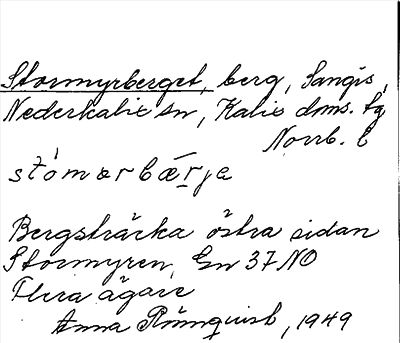 Stormyrberget, berg, Sangis,
Nederkalix sn, Kalix doms. tg
Norrb. l
stómørbǽrje
Bergsträcka östra sidan
Stormyren, Gn 37 NO
Flera ägare
Anna Rönnquist, 1949